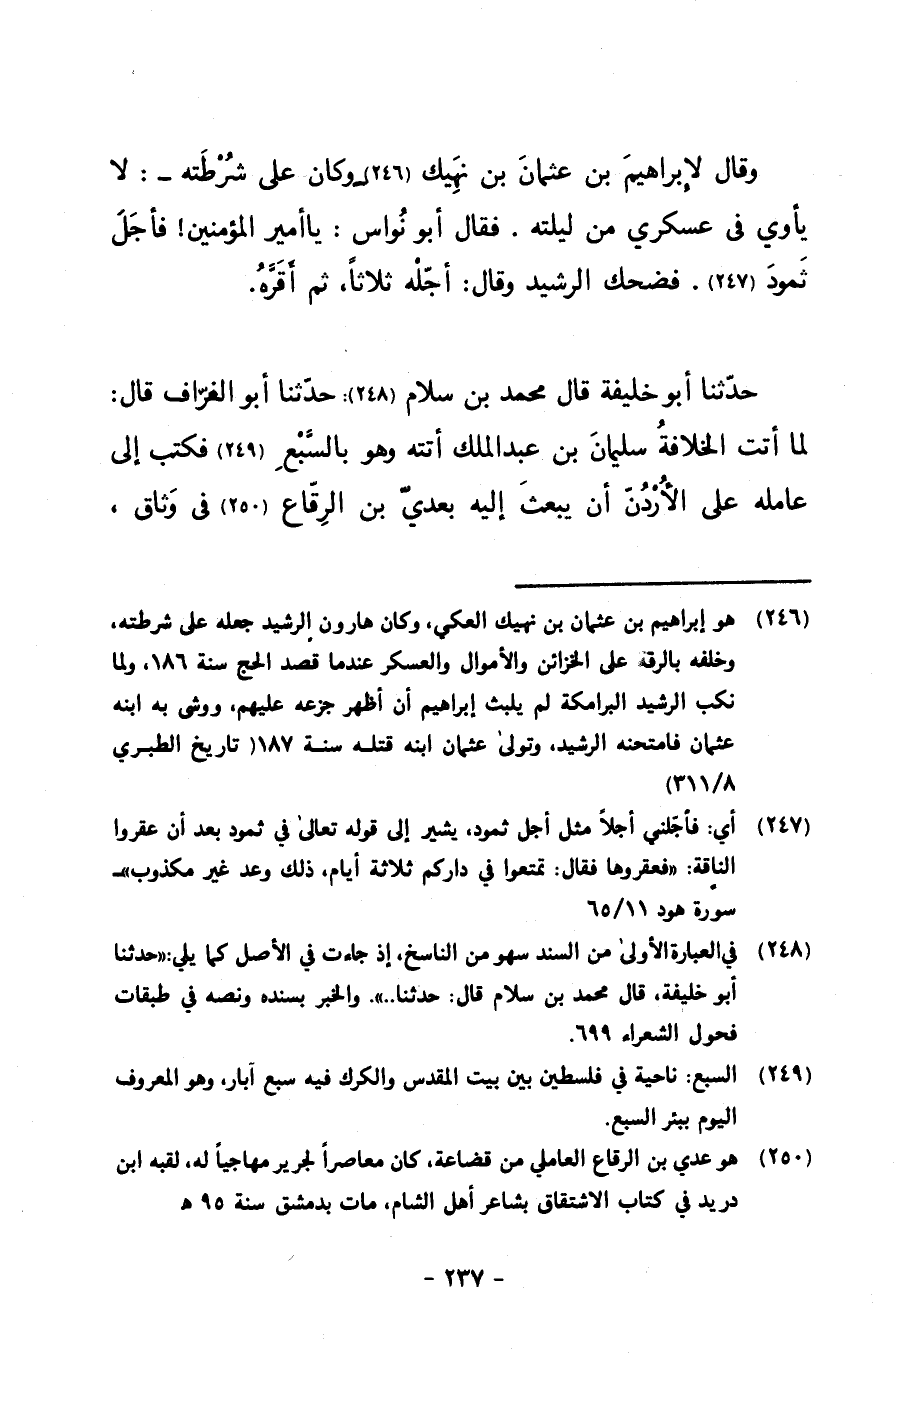 وقال لإبراهيمَ بن عثمانَ بن نَهِيك (٢٤٦)ـ وكان على شُرْطَته ـ : لا
يأوي فى عسكري من ليلته . فقال أبو نُواس : ياأمير المؤمنين! فأجَلَ
ثَمودَ (٢٤٧) . فضحك الرشيد وقال: أجّلْه ثلاثاً، ثم أَقَرَّهُ.
حدّثنا أبو خليفة قال محمد بن سلام (٢٤٨): حدّثنا أبو الغرّاف قال:
لما أتت الخلافةُ سليمانَ بن عبدالملك أتته وهو بالسَّبْعِ (٢٤٩) فكتب إلى
عامله على الأُرْدُنّ أن يبعثَ إليه بعديّ بن الرِقّاع (٢٥٠) فى وَثاق ،
(٢٤٦) هو إبراهيم بن عثمان بن نهيك العكي، وكان هارون الرشيد جعله على شرطته،
وخلفه بالرقة على الخزائن والأموال والعسكر عندما قصد الحج سنة ١٨٦، ولما
نكب الرشيد البرامكة لم يلبث إبراهيم أن أظهر جزعه عليهم، ووشى به ابنه
عثمان فامتحنه الرشيد، وتولىٰ عثمان ابنه قتلـه سنـة ١٨٧( تاريخ الطبـري
٣١١/٨)
(٢٤٧) أي: فأجّلني أجلاً مثل أجل ثمود، يشير إلى قوله تعالىٰ في ثمود بعد أن عقروا
الناقة: «فعقروها فقال: تمتعوا في داركم ثلاثة أيام، ذلك وعد غير مكذوب»ـ
سورة هود ٦٥/١١
(٢٤٨) في العبارة الأولىٰ من السند سهو من الناسخ، إذ جاءت في الأصل كما يلي:«حدثنا
أبو خليفة، قال محمد بن سلام قال: حدثنا..». والخبر بسنده ونصه في طبقات
فحول الشعراء ٦٩٩.
(٢٤٩) السبع: ناحية في فلسطين بين بيت المقدس والكرك فيه سبع آبار، وهو المعروف
اليوم ببئر السبع.
(٢٥٠) هو عدي بن الرقاع العاملي من قضاعة، كان معاصراً لجرير مهاجياً له، لقبه ابن
دريد في كتاب الاشتقاق بشاعر أهل الشام، مات بدمشق سنة ٩٥ هـ
- ٢٣٧ -